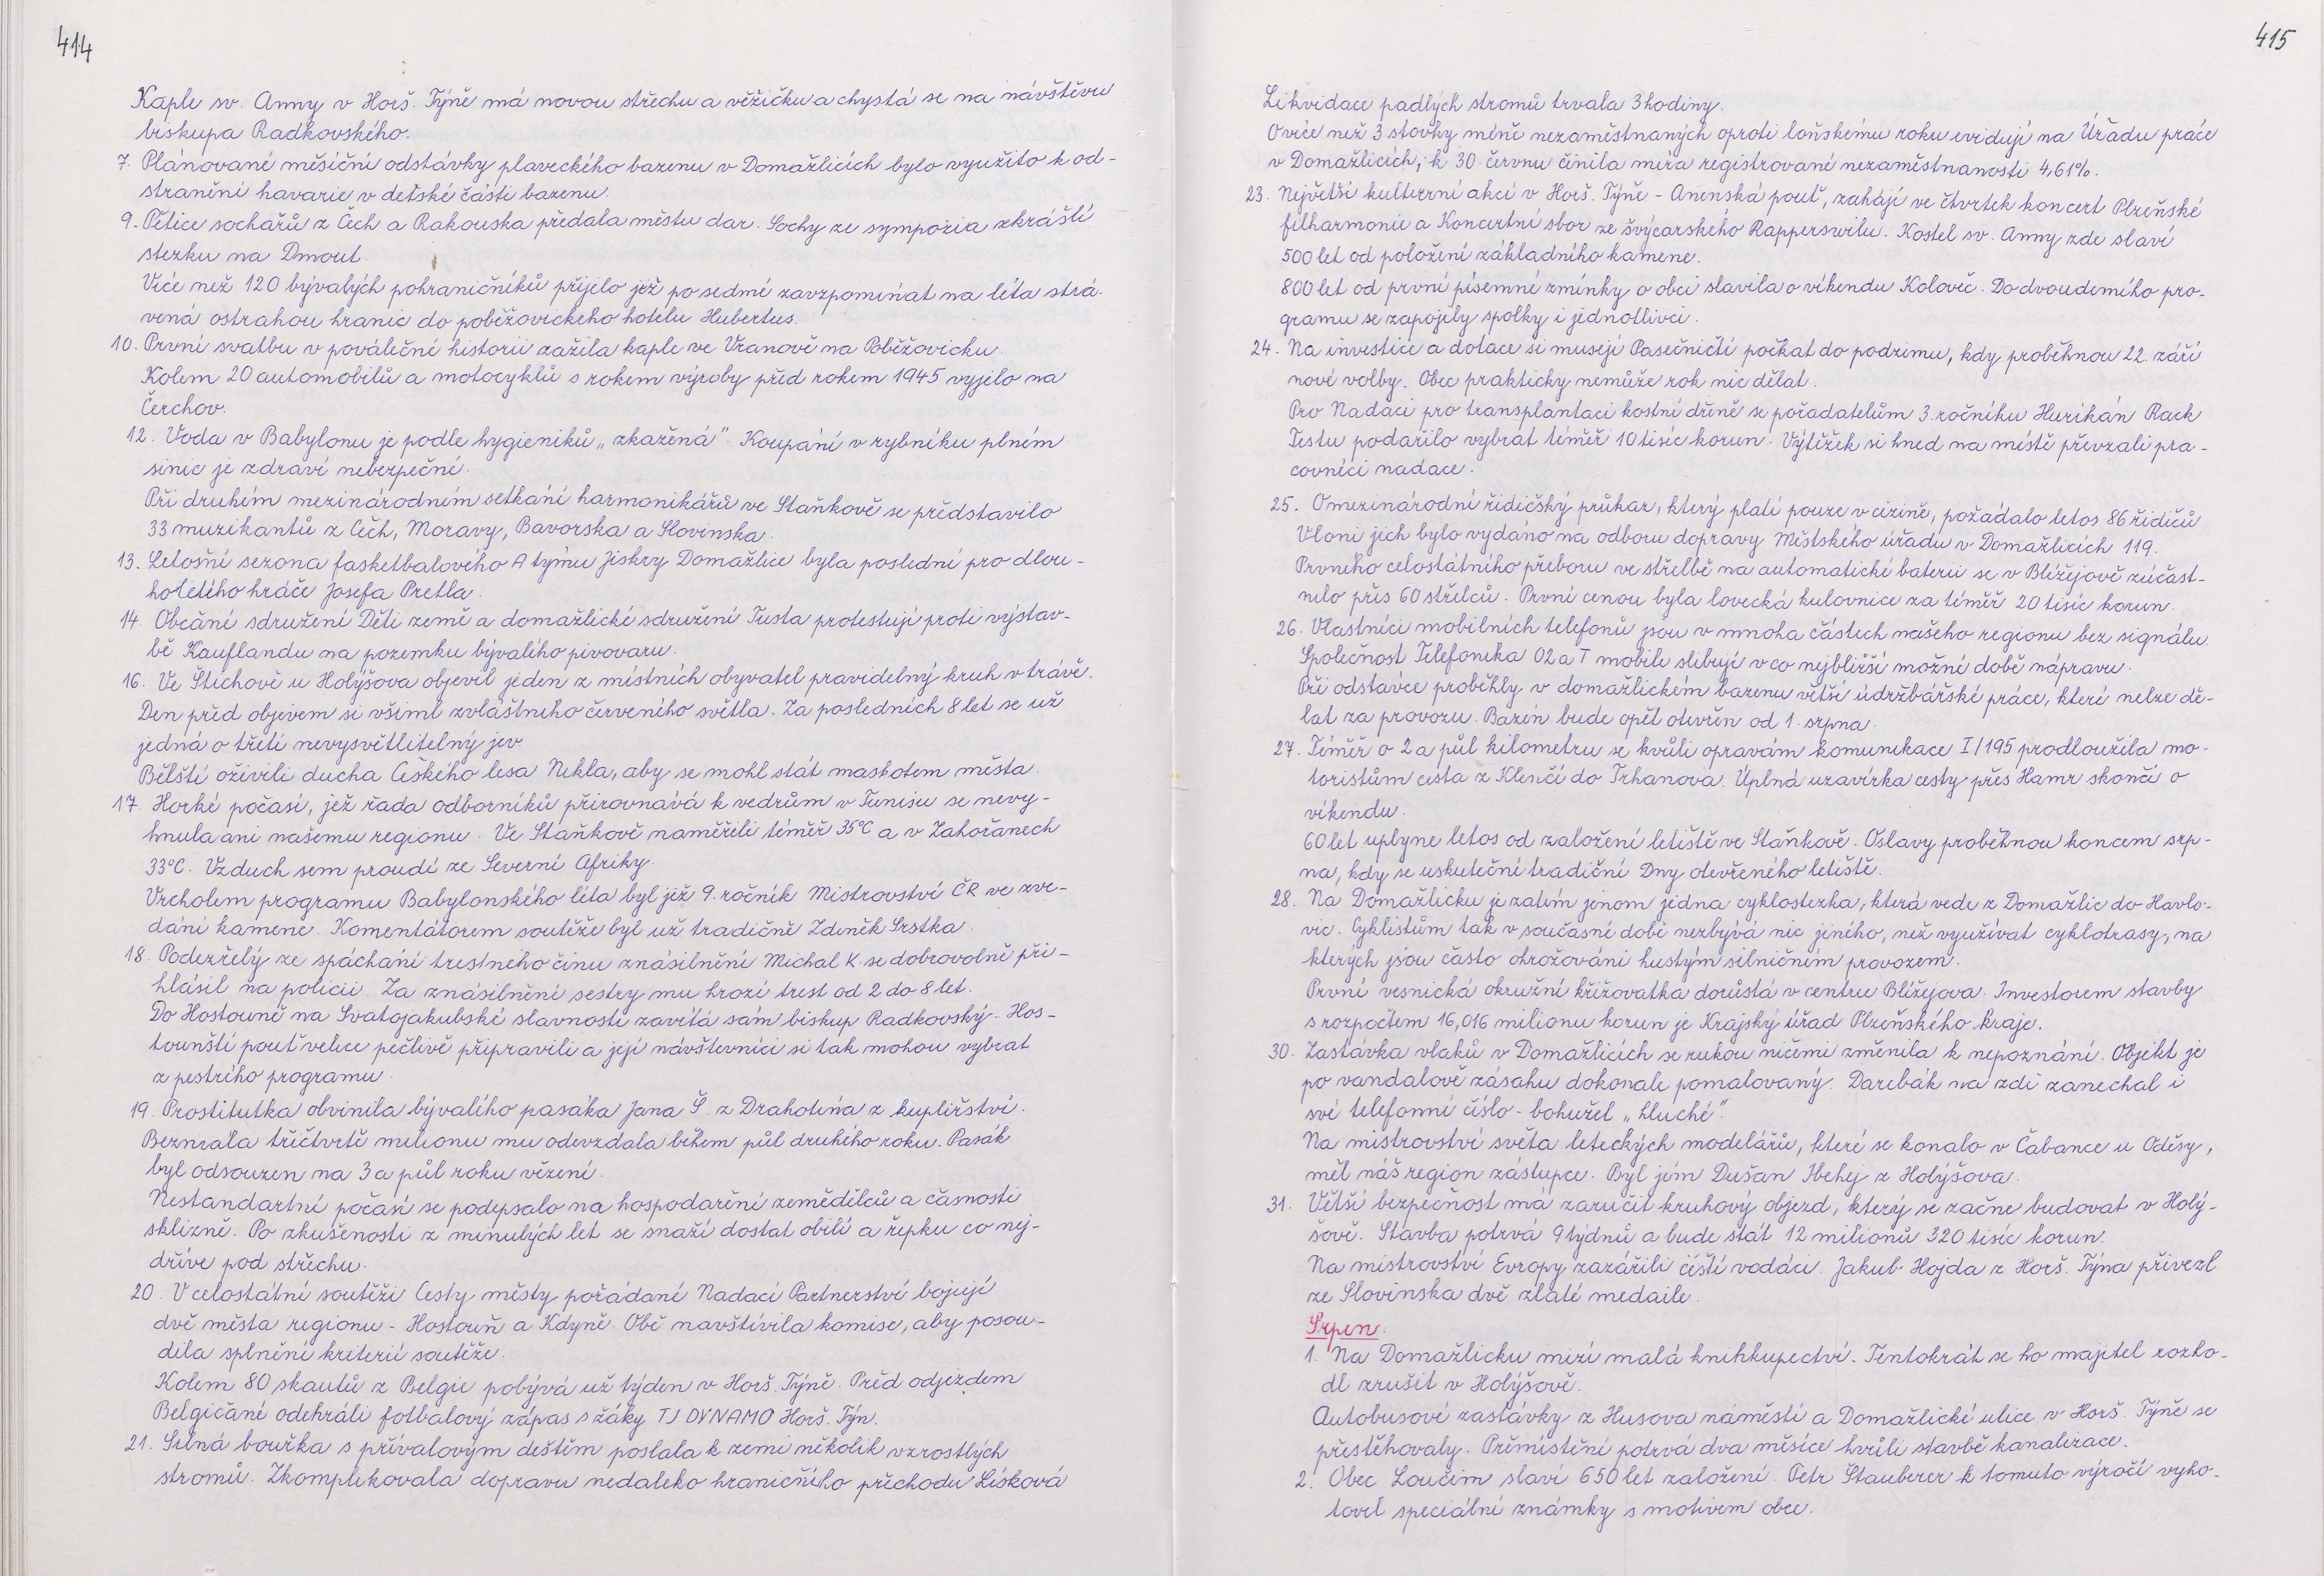 414
Kaple sv. Anny v Horš. Týně má novou střechu a věžičku a chystá se na návštěvu
biskupa Radkovského.
7. Plánované měsíční odstávky plaveckého bazenu v Domažlicích bylo využito k od-
stranění havarie v dětské části bazenu.
9. Pětice sochařů z Čech a Rakouska předala městu dar. Sochy ze sympozia zkrášlí
stezku na Dmout.
Více než 120 bývalých pohraničníků přijelo již po sedmé zavzpomínat na léta strá-
vená ostrahou hranic do poběžovického hotelu Hubertus.
10. První svatbu v poválečné historii zažila kaple ve Vranově na Poběžovicku.
Kolem 20 automobilů a motocyklů s rokem výroby před rokem 1945 vyjelo na
Čerchov.
12. Voda v Babylonu je podle hygieniků „zkažená". Koupání v rybníku plném
sinic je zdraví nebezpečné.
Při druhém mezinárodním setkání harmonikářů ve Staňkově se představilo
33 muzikantů z Čech, Moravy, Bavorska a Slovinska.
13. Letošní sezona fasketbalového A týmu Jiskry Domažlice byla poslední pro dlou-
holetého hráče Josefa Pretla.
14. Občání sdružení Děti země a domažlické sdružení Tusta protestují proti výstav-
bě Kauflandu na pozemku bývalého pivovaru.
16. Ve Štichově u Holýšova objevil jeden z místních obyvatel pravidelný kruh v trávě.
Den před objevem si všiml zvláštního červeného světla. Za posledních 8 let se už
jedná o třetí nevysvětlitelný jev.
Bělští oživili ducha Českého lesa Nikla, aby se mohl stát maskotem města.
17. Horké počasí, jež řada odborníků přirovnává k vedrům v Tunisu se nevy-
hnula ani našemu regionu. Ve Staňkově naměřili téměř 35°C a v Zahořanech
33°C. Vzduch sem proudí ze Severní Afriky.
Vrcholem programu Babylonského léta byl již 9. ročník Mistrovství ČR ve zve-
dání kamene. Komentátorem soutěže byl už tradičně Zdeněk Srstka.
18. Podezřelý ze spáchání trestného činu znásilnění Michal K. se dobrovolně při-
hlásil na policii. Za znásilnění sestry mu hrozí trest od 2 do 8 let.
Do Hostouně na Svatojakubské slavnosti zavítá sám biskup Radkovský. Hos-
tounští pouť velice pečlivě připravili a její návštevníci si tak mohou vybrat
z pestrého programu.
19. Prostitutka obvinila bývalého pasáka Jana Š. z Drahotína z kuplířství.
Bezmála tříčtvrtě milionu mu odevzdala během půl druhého roku. Pasák
byl odsouzen na 3 a půl roku vězení.
Nestandartní počasí se podepsalo na hospodaření zemědělců a časnosti
sklizně. Po zkušenosti z minulých let se snaží dostat obilí a řepku co nej-
dříve pod střechu.
20. V celostátní soutěži Cesty městy pořádané Nadací Partnerství bojují
dvě města regionu - Hostouň a Kdyně. Obě navštívila komise, aby posou-
dila splnění kriterií soutěže.
Kolem 80 skautů z Belgie pobývá už týden v Horš. Týně. Před odjezdem
Belgičané odehráli fotbalový zápas s žáky TJ DYNAMO Horš. Týn.
21. Silná bouřka s přívalovým deštěm poslala k zemi několik vzrostlých
stromů. Zkomplikovala dopravu nedaleko hraničního přechodu Lísková
415
Likvidace padlých stromů trvala 3 hodiny.
O více než 3 stovky méně nezaměstnaných oproti loňskému roku evidují na Úřadu práce
v Domažlicích; k 30. červnu činila míra registrované nezaměstnanosti 4,61%.
23. Největší kulturní akci v Horš. Týně - Anenská pouť, zahájí ve čtvrtek koncert Plzeňské
filharmonie a Koncertní sbor ze švýcarského Rapperswilu. Kostel sv. Anny zde slaví
500 let od položení základního kamene.
800 let od první písemné zmínky o obci slavila o víkendu Koloveč. Do dvoudenního pro-
gramu se zapojily spolky i jednotlivci.
24. Na investice a dotace si musejí Pasečničtí počkat do podzimu, kdy proběhnou 22. září
nové volby. Obec prakticky nemůže rok nic dělat.
Pro Nadaci pro transplantaci kostní dřeně se pořadatelům 3. ročníku Hurikán Rock
Testu podařilo vybrat téměř 10 tisíc korun. Výtěžek si hned na místě převzali pra-
covníci nadace.
25. O mezinárodní řidičský průkaz, který platí pouze v cizině, požádalo letos 86 řidičů
Vloni jich bylo vydáno na odboru dopravy Městského úřadu v Domažlicích 119.
Prvního celostátního přeboru ve střelbě na automatické baterii se v Blížejově zúčast-
nilo přes 60 střelců. První cenou byla lovecká kulovnice za téměř 20 tisíc korun.
26. Vlastníci mobilních telefonů jsou v mnoha částech našeho regionu bez signálu.
Společnost Telefonika O2 a T mobile slibují v co nejbližší možné době nápravu.
Při odstávce proběhly v domažlickém bazenu větší údržbářské práce, které nelze dě-
lat za provozu. Bazén bude opět otevřen od 1. srpna.
27. Téměř o 2 a půl kilometru se kvůli opravám komunikace I/195 prodloužila mo-
toristům cesta z Klenčí do Trhanova. Úplná uzavírka cesty přes Hamr skončí o
víkendu.
60 let uplyne letos od založení letiště ve Staňkově. Oslavy proběhnou koncem srp-
na, kdy se uskuteční tradiční Dny otevřeného letiště.
28. Na Domažlicku je zatím jenom jedna cyklostezka, která vede z Domažlic do Havlo-
vic. Cyklistům tak v současné době nezbývá nic jiného, než využívat cyklotrasy, na
kterých jsou často ohrožováni hustým silničním provozem.
První vesnická okružní křižovatka dorůstá v centru Blížejova. Investorem stavby
s rozpočtem 16,016 milionu korun je Krajský úřad Plzeňského kraje.
30. Zastávka vlaků v Domažlicích se rukou ničemi změnila k nepoznání. Objekt je
po vandalově zásahu dokonale pomalovaný. Darebák na zdi zanechal i
své telefonní číslo - bohužel „hluché".
Na mistrovství světa leteckých modelářů, které se konalo v Čabance u Oděsy,
měl náš region zástupce. Byl jím Dušan Ibehej z Holýšova.
31. Větší bezpečnost má zaručit kruhový objezd, který se začne budovat v Holý-
šově. Stavba potrvá 9 týdnů a bude stát 12 milionů 320 tisíc korun.
Na mistrovství Evropy zazářili čeští vodáci. Jakub Hojda z Horš. Týna přivezl
ze Slovinska dvě zlaté medaile.
Srpen:
1. Na Domažlicku mizí malá knihkupectví. Tentokrát se ho majitel rozho-
dl zrušit v Holýšově.
Autobusové zastávky z Husova náměstí a Domažlické ulice v Horš. Týně se
přestěhovaly. Přemístění potrvá dva měsíce kvůli stavbě kanalizace.
2. Obec Loučim slaví 650 let založení. Petr Štauberer k tomuto výročí vyho-
tovil speciální známky s motivem obce.